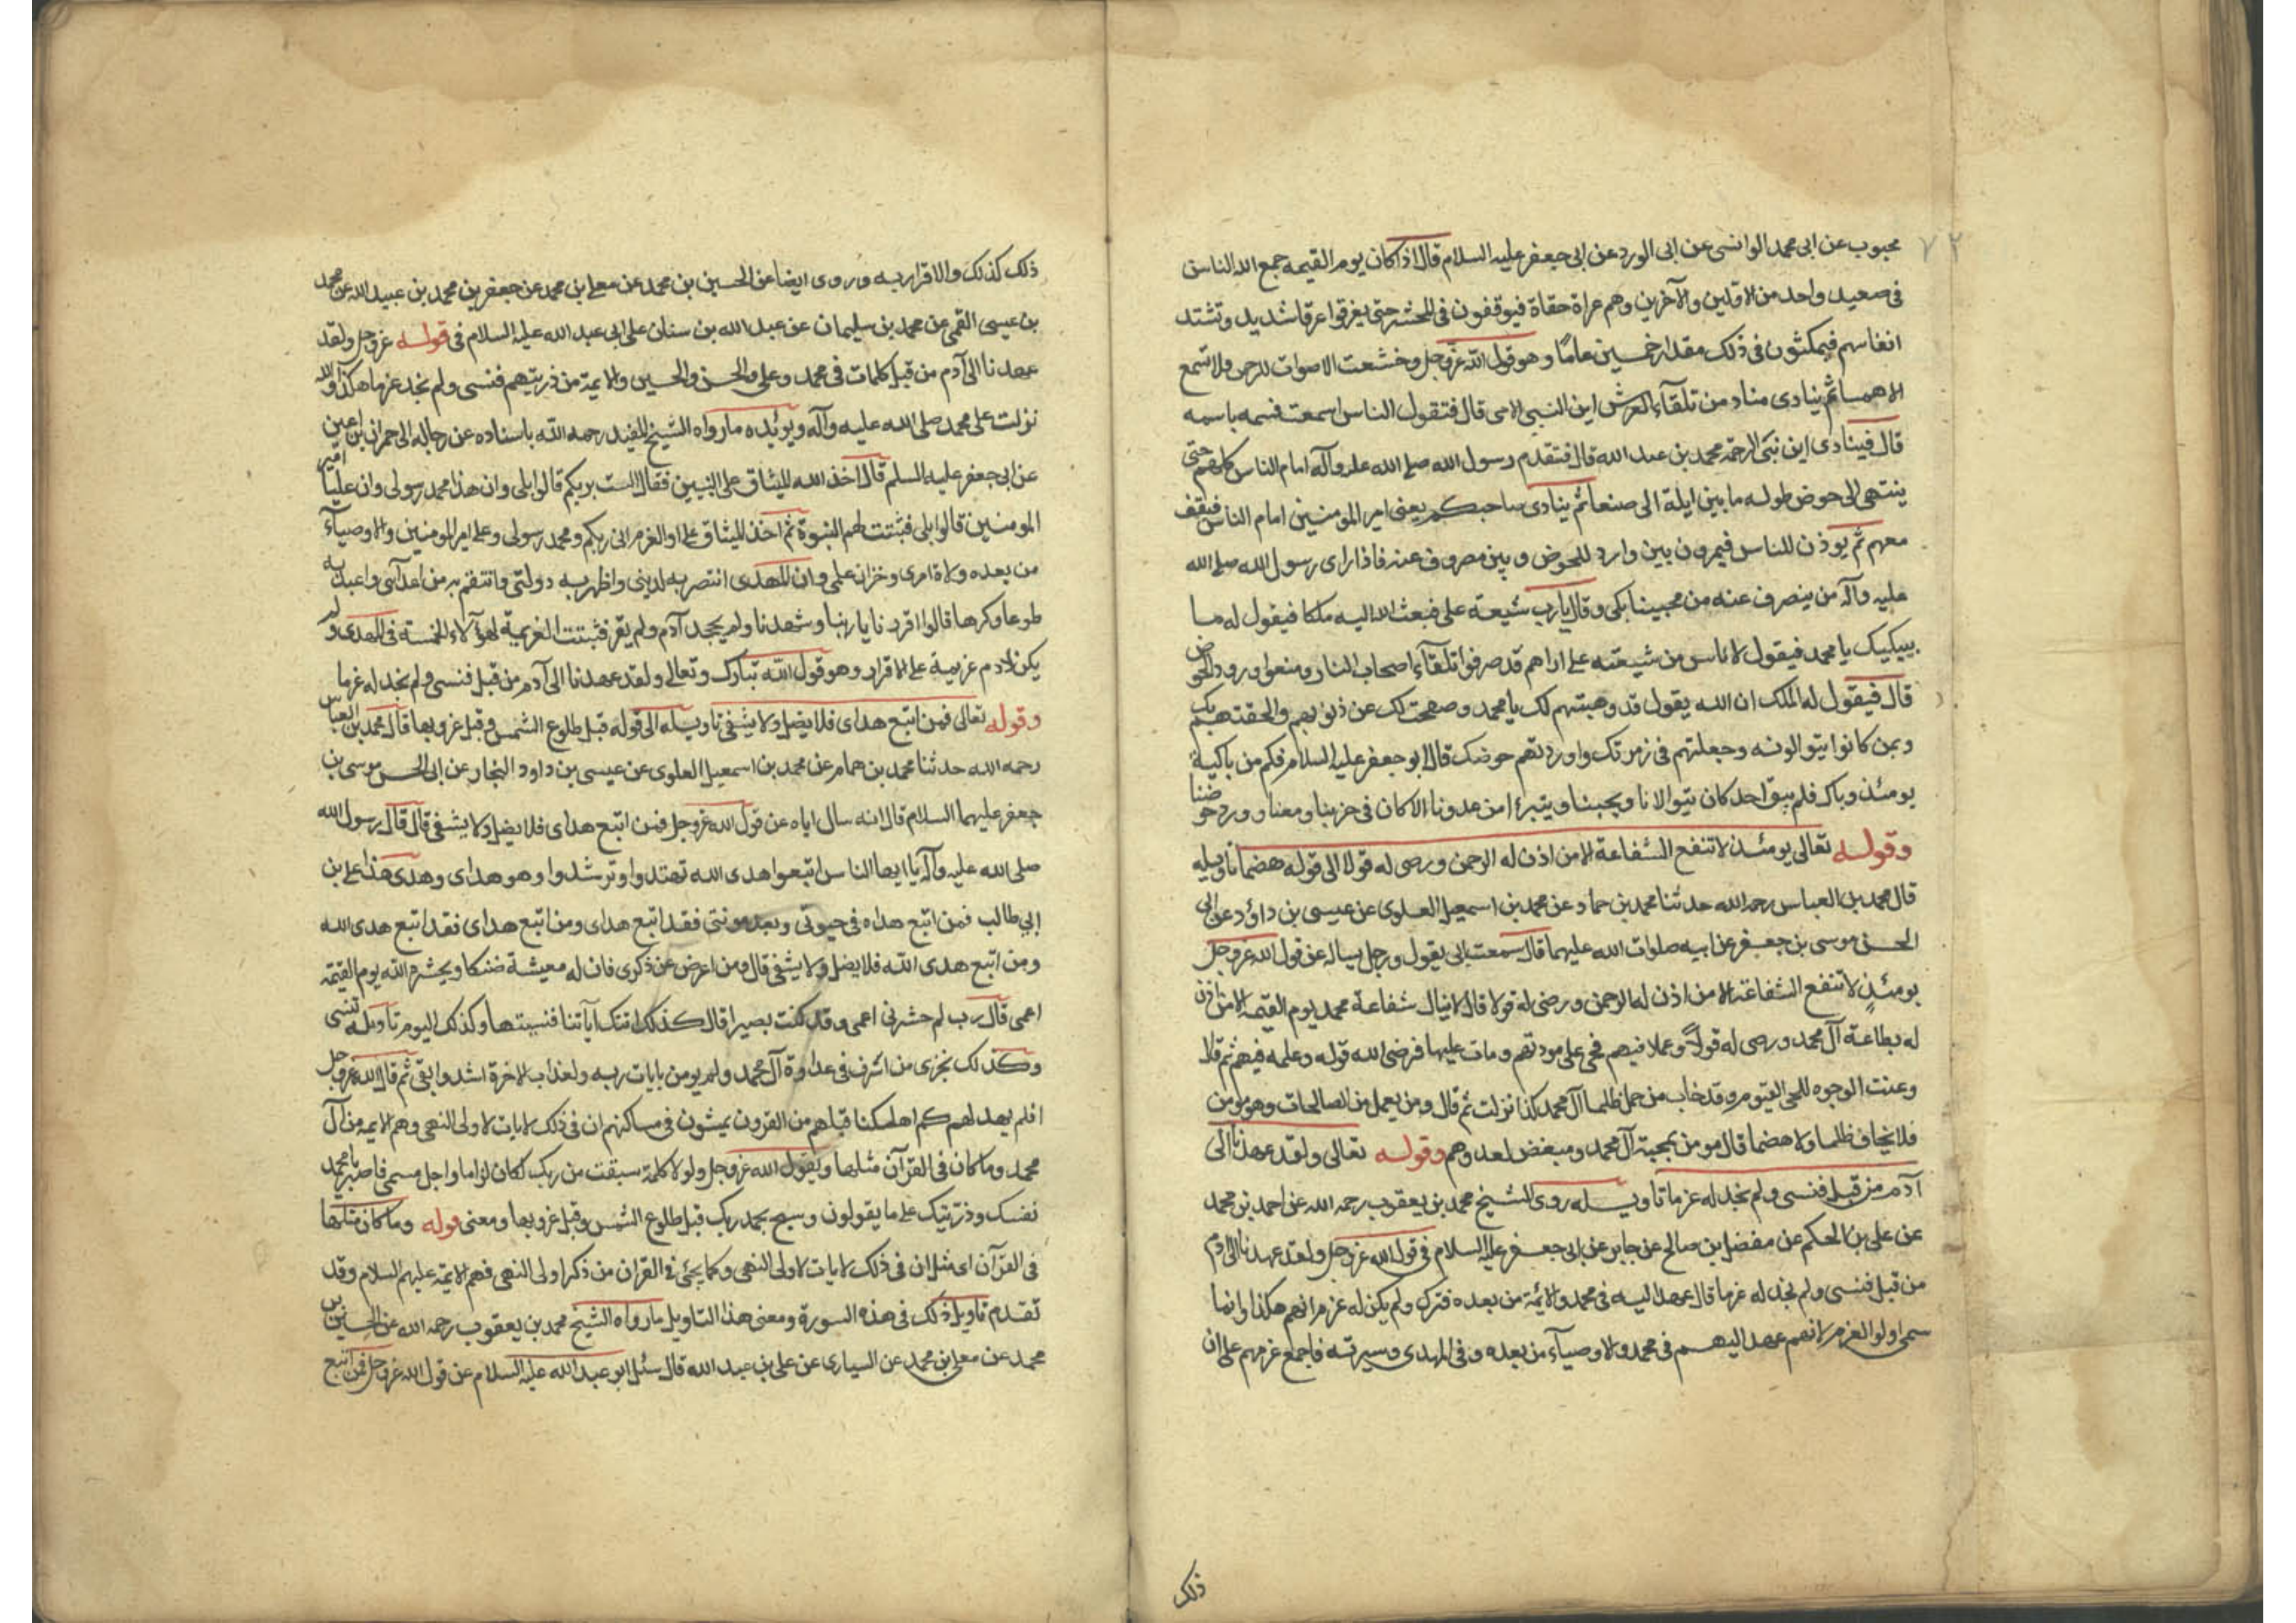 ٧٢
محبوب عن ابى محمد الوانسى عن ابى الورد عن ابى جعفر عليه السلام قال اذا كان يوم القيمه جمع الله الناس
فى صعيد واحد من الاولين والآخرين وهم عراة حفاة فيوقفون فى المحشر حتى يغرقوا عرقا شديد وتشتد
انفاسهم فيمكثون فى ذلك مقدار خمسين عاما وهو قول الله عز وجل وخشعت الاصوات للرحمن فلا تسمع
الا همسا ثم ينادى مناد من تلقآء العرش اين النبى الامى قال فتقول الناس اسمعت فسمه باسمه
قال فينادى اين نبى الرحمة محمد بن عبد الله قال فتقدم رسول الله صلى الله عليه وآله امام الناس كلهم حتى
ينتهى الى حوض طوله ما بين ايلة الى صنعا ثم ينادى صاحبكم يعنى امير المومنين امام الناس فيقف
معهم ثم يوذن للناس فيمرون بين وارد للحوض وبين مصروف عنه فاذا راى رسول الله صلى الله
عليه وآله من ينصرف عنه من محبينا بكى وقال يارب شيعة على فبعث الله اليه ملكا فيقول له ما
يبكيك يا محمد فيقول لاناس من شيعته على اراهم قد صرفوا تلقآء اصحاب النار ومنعوا ورود الحوض
قال فيقول له الملك ان الله يقول قد وهبتهم لك يا محمد وصفحت لك عن ذنوبهم والحقتهم بك
وبمن كانوا يتوالونه وجعلتهم فى زمرتك واوردتهم حوضك قال ابو جعفر عليه السلام فكم من باكية
يومئذ وباك فلم يبق احد كان يتوالانا ويحبنا ويتبرا من عدونا الا كان فى حزبنا ومعنا وورد حوضنا
وقوله تعالى يومئذ لا تنفع الشفاعة الا من اذن له الرحمن ورضى له قولا الى قوله هضما تاويله
قال محمد بن العباس رحمه الله حدثنا محمد بن حماد عن محمد بن اسمعيل العلوى عن عيسى بن داؤد عن ابى
الحسن موسى بن جعفر عن ابيه صلوات الله عليهما قال سمعت ابى يقول ورجل يساله عن قول الله عز وجل
يومئذ لا تنفع الشفاعة الا من اذن له الرحمن ورضى له قولا قال لا ينال شفاعة محمد يوم القيمة الا من اذن
له بطاعة آل محمد ورضى له قولا وعملا فيهم فحى على مودتهم ومات عليها فرضى الله قوله وعلمه فيهم ثم قال
وعنت الوجوه للحى القيوم وقد خاب من حمل ظلما آل محمد كذا نزلت ثم قال ومن يعمل من الصالحات وهو مومن
فلا يخاف ظلما ولا هضما قال مومن بمحبة آل محمد ومبغض لعدوهم وقوله تعالى ولقد عهدنا الى
آدم من قبل فنسى ولم نجد له عزما تاويله روى الشيخ محمد بن يعقوب رحمه الله عن احمد بن محمد
عن على بن الحكم عن مفضل بن صالح عن جابر عن ابى جعفر عليه السلام فى قول الله عز وجل ولقد عهدنا الى آدم
من قبل فنسى ولم نجد له عزما قال عهدنا اليه فى محمد والائمة من بعده فترك ولم يكن له عزم انهم هكذا وانما
سمى اولوا العزم لانهم عهد اليهم فى محمد والاوصيآء من بعده وفى المهدى وسيرته فاجمع عزمهم على ان
ذلك
ذلك كذلك والاقرار به وروى ايضا عن الحسين بن محمد عن معلى بن محمد عن جعفر بن محمد بن عبيد الله عن محمد
بن عيسى القمى عن محمد بن سليمان عن عبد الله بن سنان على ابى عبد الله عليه السلام فى قوله عز وجل ولقد
عهدنا الى آدم من قبل كلمات فى محمد وعلى والحسن والحسين والايمة من ذريتهم فنسى ولم نجد عزما هكذا والله
نزلت على محمد صلى الله عليه وآله ويؤيده ما رواه الشيخ المفيد رحمه الله باسناده عن رجاله الى حمران بن اعين
عن ابى جعفر عليه السلم قال اخذ الله الميثاق على النبيين فقال الست بربكم قالوا بلى وان هذا محمد رسولى وان عليا امير
المومنين قالوا بلى فثبتت لهم النبوة ثم اخذ الميثاق على اولى العزم انى ربكم ومحمد رسولى وعلى امير المومنين والاوصيآء
من بعده ولاة امرى وخزان علمى وان المهدى انتصر به لدينى واظهر به دولتى وانتقم به من اعدآئى واعبد به
طوعا وكرها قالوا اقررنا يا ربنا وشهدنا ولم يجحد آدم ولم يقر فثبتت العزيمة لهؤلآء الخمسة فى المهدى ولم
يكن لادم عزيمة على الاقرار وهو قول الله تبارك وتعالى ولقد عهدنا الى آدم من قبل فنسى ولم نجد له عزما
وقوله تعالى فمن اتبع هداى فلا يضل ولا يشقى تاويله الى قوله قبل طلوع الشمس وقبل غروبها قال محمد بن العباس
رحمه الله حدثنا محمد بن همام عن محمد بن اسمعيل العلوى عن عيسى بن داود النجار عن ابى الحسن موسى بن
جعفر عليهما السلام قال انه سال اباه عن قول الله عز وجل فمن اتبع هداى فلا يضل ولا يشقى قال قال رسول الله
صلى الله عليه وآله يا ايها الناس اتبعوا هدى الله تهتدوا وترشدوا وهو هداى وهدى هذا على بن
ابي طالب فمن اتبع هداه فى حيوتى وبعد موتى فقد اتبع هداى ومن اتبع هداى فقد اتبع هدى الله
ومن اتبع هدى الله فلا يضل ولا يشقى قال ومن اعرض عن ذكرى فان له معيشة ضنكا ويحشره الله يوم القيمة
اعمى قال رب لم حشرنى اعمى وقد كنت بصيرا قال كذلك اتتك آياتنا فنسيتها وكذلك اليوم تنسى تاويله
وكذلك نجزى من اشرف فى عداوة آل محمد ولم يومن بايات ربه ولعذاب الاخرة اشد وابقى ثم قال الله عز وجل
افلم يهد لهم كم اهلكنا قبلهم من القرون يمشون فى مساكنهم ان فى ذلك لايات لاولى النهى وهم الايمة من آل
محمد وما كان فى القرآن مثلها ويقول الله عز وجل ولولا كلمة سبقت من ربك لكان لزاما واجل مسمى فاصبر يا محمد
نفسك وذريتك على ما يقولون وسبح بحمد ربك قبل طلوع الشمس وقبل غروبها ومعنى قوله وما كان مثلها
فى القرآن اى مثل ان فى ذلك لايات لاولى النهى وكما يجئى فى القران من ذكر اولى النهى فهم الايمة عليهم السلام وقد
تقدم تاويل ذلك فى هذه السورة ومعنى هذا التاويل ما رواه الشيخ محمد بن يعقوب رحمه الله عن الحسين بن
محمد عن معلى بن محمد عن السيارى عن على بن عبد الله قال سئل ابو عبد الله عليه السلام عن قول الله عز وجل فمن اتبع